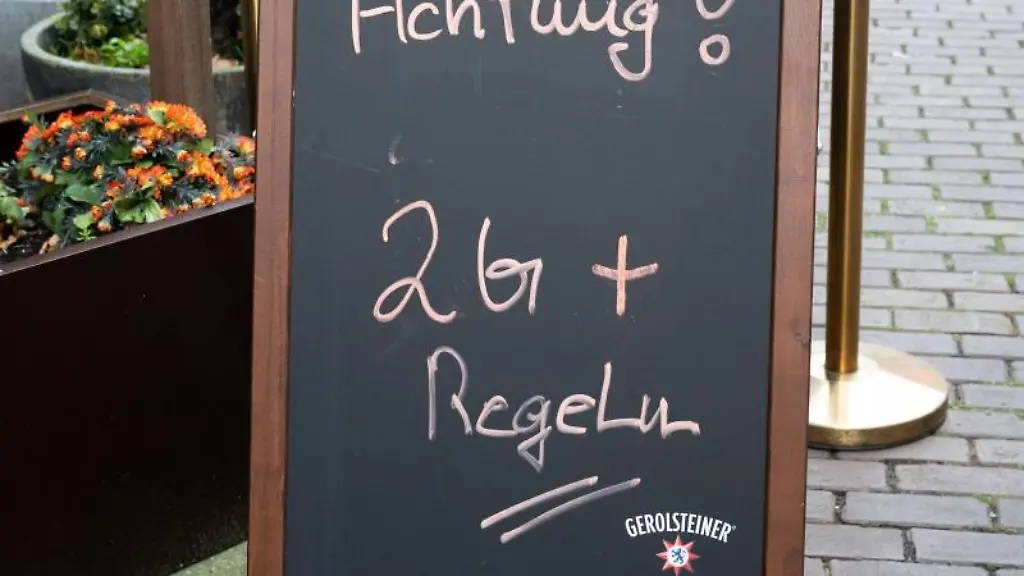 Achtung!
2G +
Regeln
GEROLSTEINER